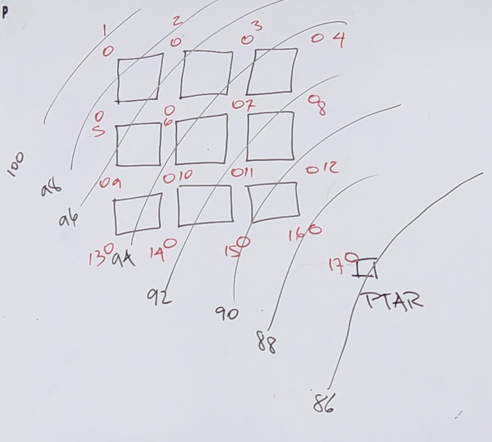 P
1 2 3 4
5 6 7 8
9 10 11 12
13 14 15 16
17
PTAR
100
98
96
94
92
90
88
86